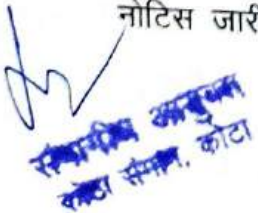 नोटिस जारी
संभागीय आयुक्त
कोटा संभाग, कोटा